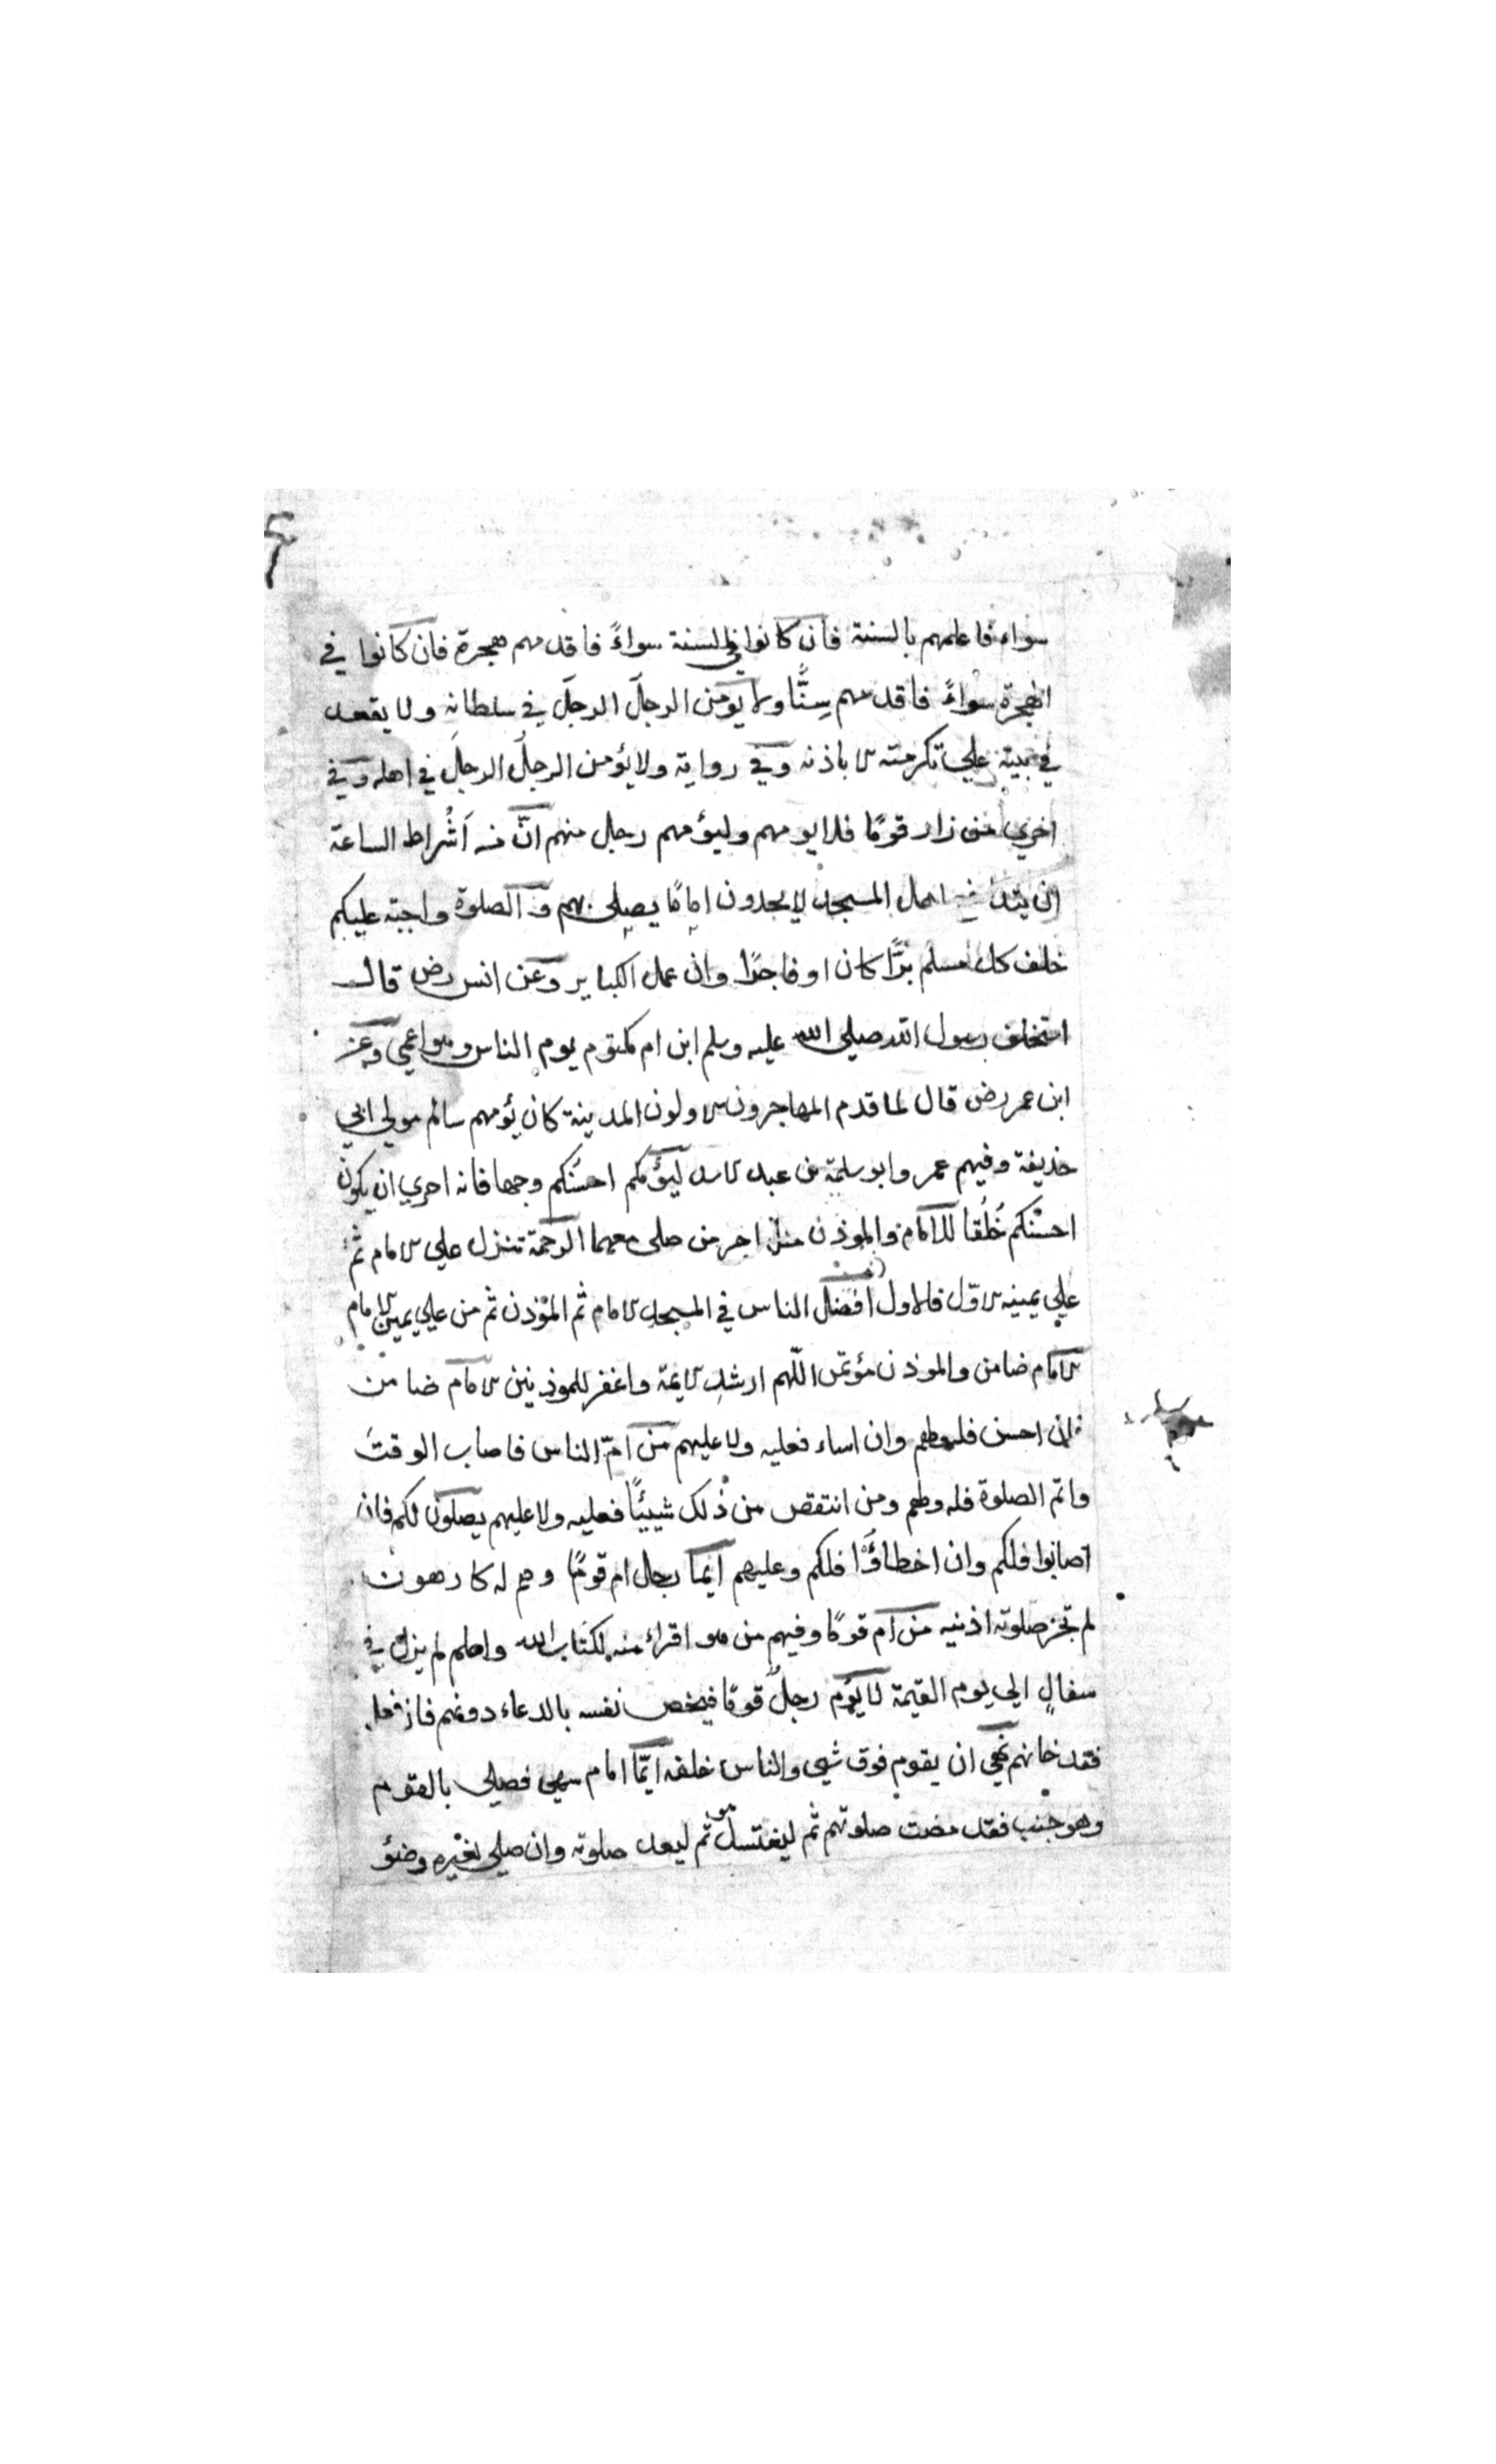 سواء فاعلمهم بالسنة فان كانوا في السنة سواءً فاقدمهم هجرة فان كانوا في
الهجرة سواءً فاقدمهم سِنًّا ولا يؤمن الرجلُ الرجلَ في سلطانه ولا يقعد
في بيته علي تكرمته الا باذنه وفي رواية ولا يؤمن الرجلُ الرجلَ في اهله وفي
اخري من زار قومًا فلا يومهم وليؤمهم رجل منهم انّ من اَشْراط الساعة
ان يتدافع اهل المسجد لا يجدون امامًا يصلي بهم و الصلوة واجبة عليكم
خلف كل مسلم برًّا كان او فاجرًا وان عمل الكباير وعن انس رض قال
استخلف رسول الله صلي الله عليه وسلم ابن ام مكتوم يوم الناس وهو اعمي وعن
ابن عمر رض قال لما قدم المهاجرون الاولون المدينة كان يؤمهم سالم مولي ابي
حذيفة وفيهم عمر وابو سلمة بن عبد الاسد ليؤمكم احسنكم وجها فانه احري ان يكون
احسنكم خُلُقا للامام والموذن مثل اجر من صلي معهما الرحمة تنزل علي الامام ثم
علي يمينه الاول فالاول افضل الناس في المسجد الامام ثم المؤذن ثم من علي يمين الامام
الامام ضامن والموذن مؤتمن اللّهم ارشد الايمة واغفر للموذنين الامام ضامن
فان احسن فله ولهم وان اساء فعليه ولا عليهم من امّ الناس فاصاب الوقتَ
واتم الصلوة فله ولهم ومن انتقص من ذلك شيئًا فعليه ولا عليهم يصلون لكم فان
اصابوا فلكم وان اخطاؤُا فلكم وعليهم ايما رجل ام قومًا وهم له كارهون
لم تجز صلوته اذنيه من ام قومًا وفيهم من هو اقراء منه لكتاب الله واعلم لم يزل في
سفالٍ الي يوم القيمة لا يؤم رجلٌ قومًا فيخص نفسه بالدعاء دونهم فان فعل
فقد خانهم نهي ان يقوم فوق شيي والناس خلفه ايّما امام سهي فصلي بالقوم
وهو جنب فقد مضت صلوتهم ثم ليغتسل هو ثم ليعد صلوته وان صلي بغير وضؤ